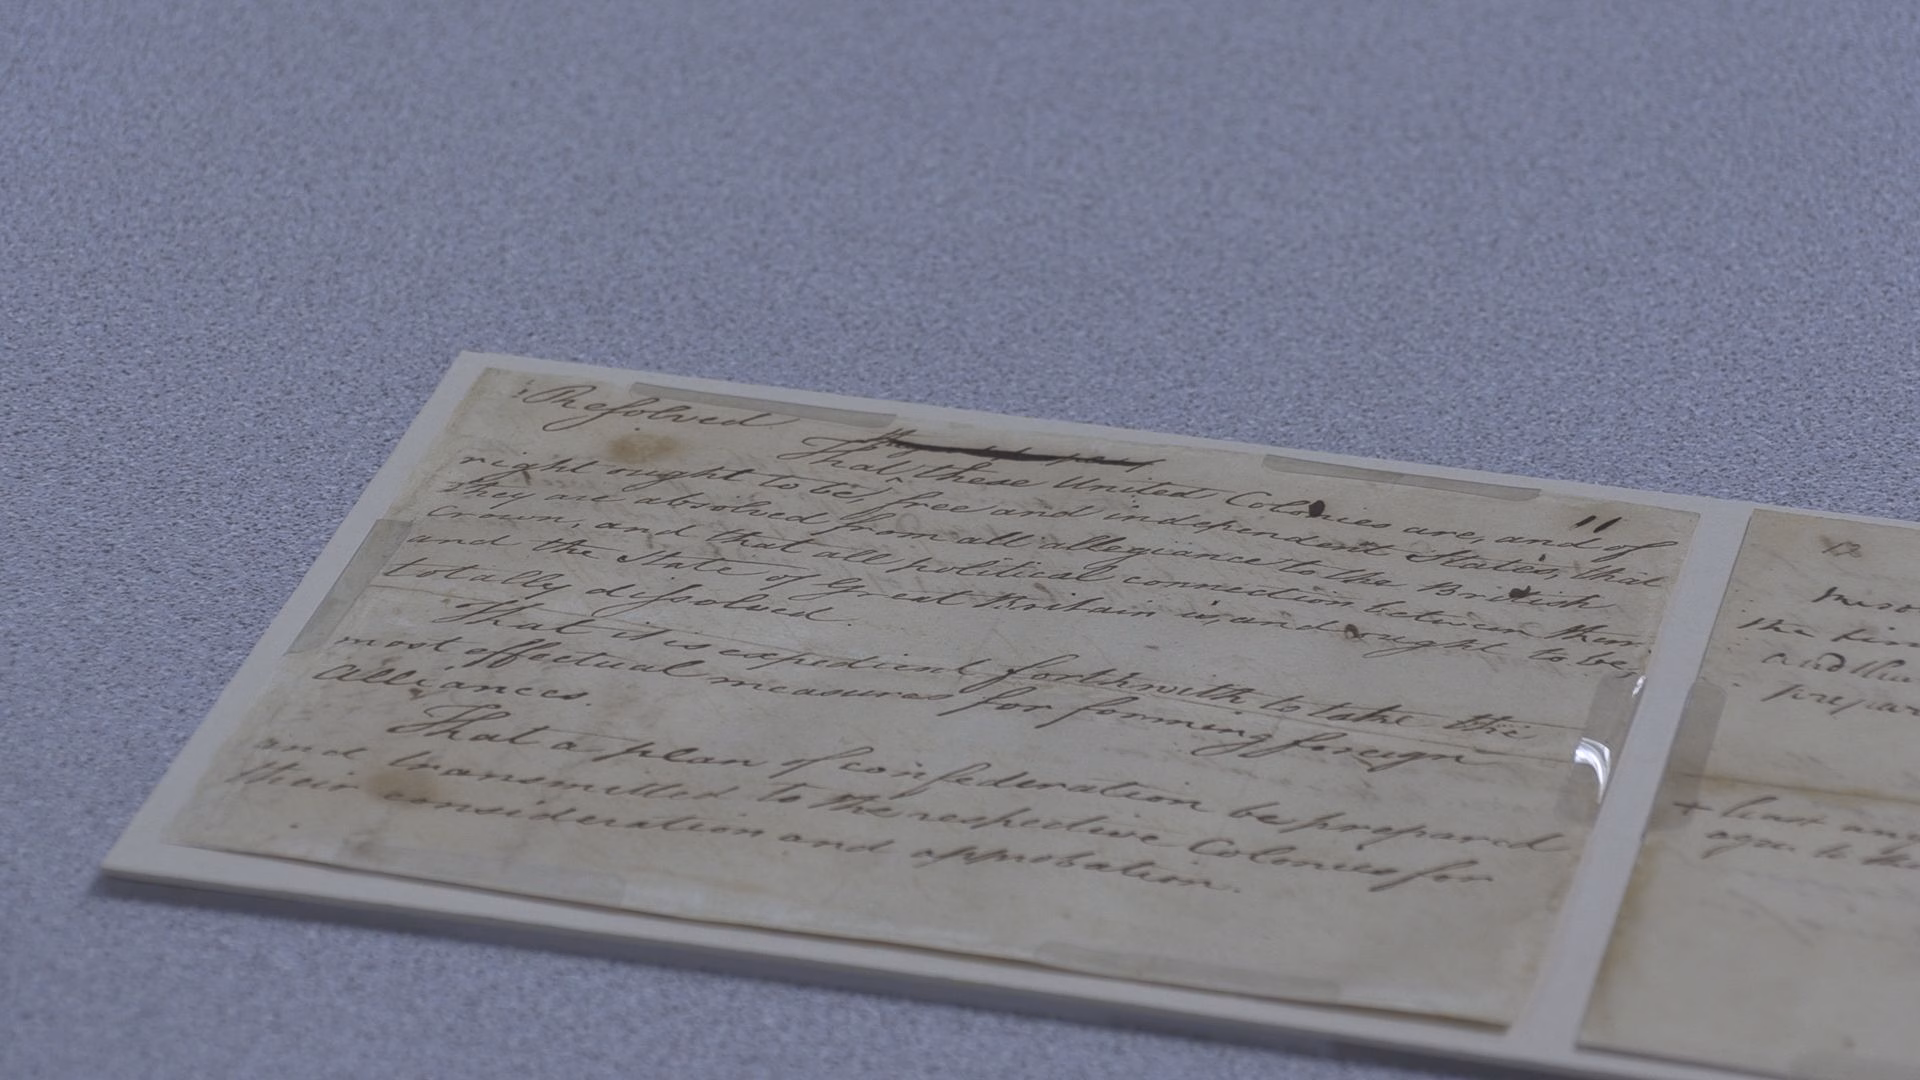 Resolved
That these United Colonies are, and of
right ought to be, free and independent States, that
they are absolved from all allegiance to the British
Crown, and that all political connection between them
and the State of Great Britain is, and ought to be,
totally dissolved.
That it is expedient forthwith to take the
most effectual measures for forming foreign
Alliances.
That a plan of confederation be prepared
and transmitted to the respective Colonies for
their consideration and approbation.
11
12
the